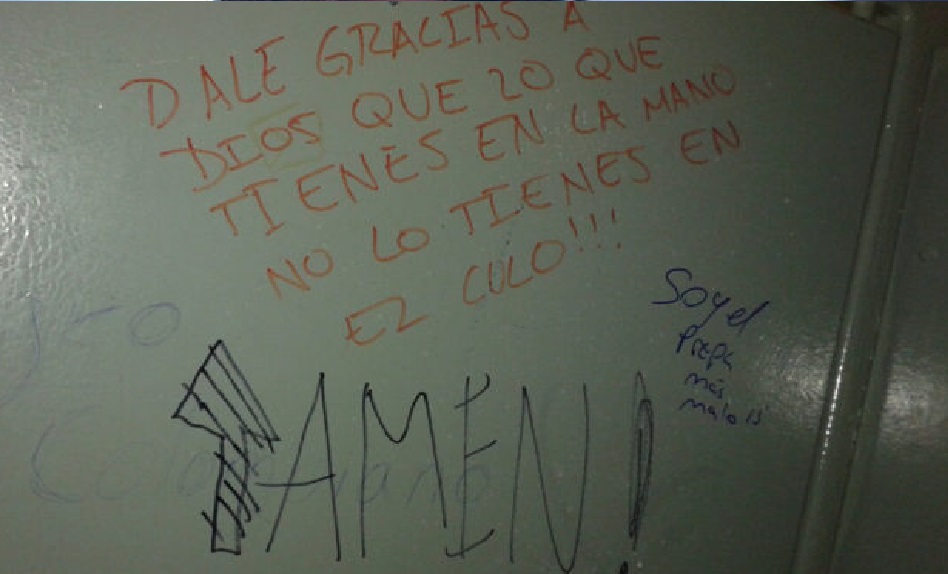 DALE GRACIAS A
DIOS QUE LO QUE
TIENES EN LA MANO
NO LO TIENES EN
EL CULO!!!
Soy el
Prepa
más
malo
AMEN!